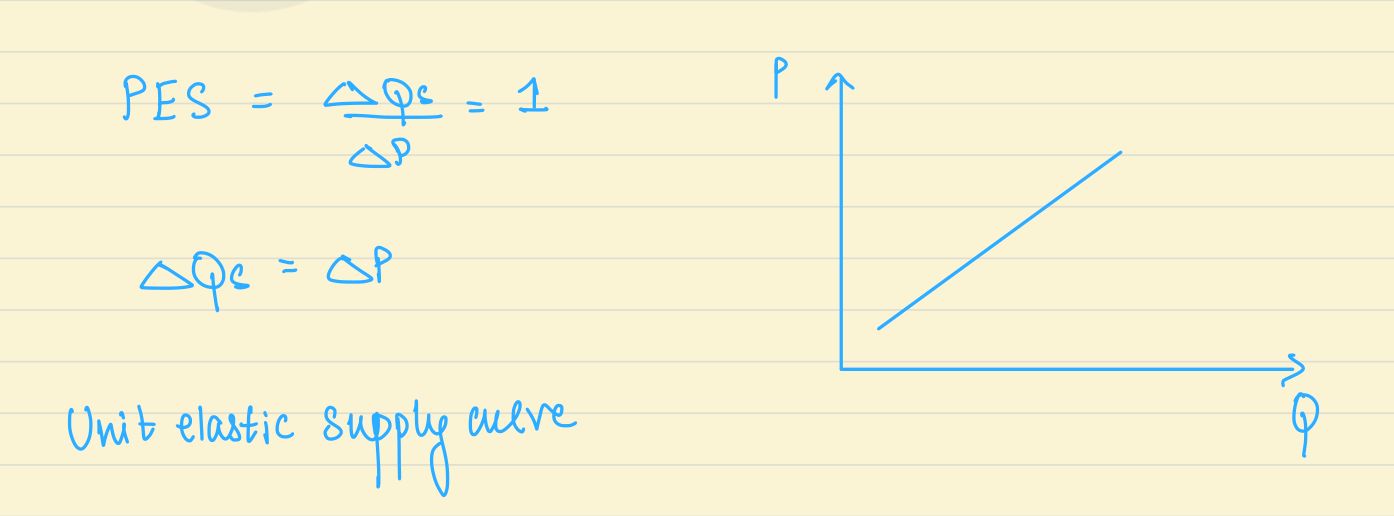 PES = ΔQs / ΔP = 1
ΔQs = ΔP
Unit elastic supply curve
P
Q